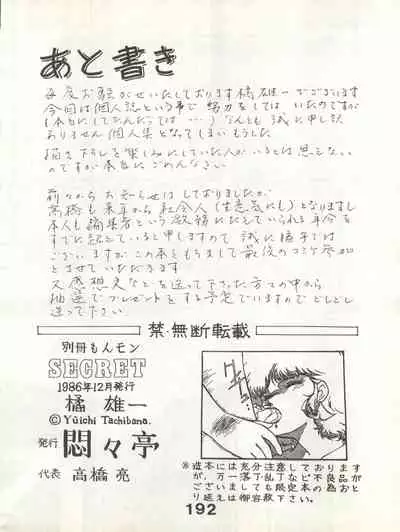 あと書き
毎度お騒がせいたしております橘雄一でございます
今回は個人誌という事で努力をしては いたのですが
(本当にしてたんだってば ……) なんとも 誠に申し訳
ありません 個人集となってしまいもうした
描き下ろしを楽しみにしていた人がいるとは思えない
のですが本当に ごめんなさい
前々から お知らせは しておりましたが
高橋も来年から 社会人 (生意気にも) となりますし
本人も編集者という激務にたえていられる年令も
すでに超えていると申しますので 誠に 勝手では
ございますが この本をもちまして最後のコミケ参加
とさせていただきます
又感想文などを送って下さった方々の中から
抽選でプレゼントをする予定でいますのでどしどし
送って下さい
禁・無断転載
別冊もんモン
SECRET
1986年12月発行
橘 雄一
© Yūichi Tachibana.
発行 悶々亭
代表 高橋 亮
※造本には充分注意しております
が、万一落丁乱丁など不良品が
ございましても限定本の為おと
り換えは御容赦下さい。
192